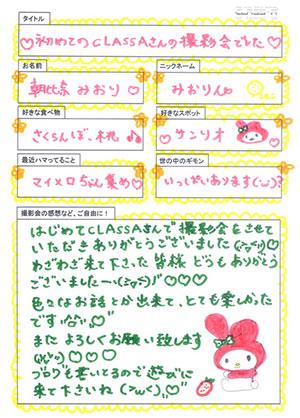 タイトル
♡初めてのCLASSAさんの撮影会でした♡
お名前
ニックネーム
朝比奈 みおり♡
みおりん
好きな食べ物
好きなスポット
さくらんぼ・桃♪
サンリオ
最近ハマってること
世の中のギモン
マイメロちゃん集め♡
いっぱいあります(´ω`)?
撮影会の感想など、ご自由に!
はじめてCLASSAさんで撮影会をさせて
いただきありがとうございました
わざわざ来て下さった皆様 どうもありがとう
ございましたー♡♡♡
色々なお話とか出来て、とても楽しかった
です♡
また よろしくお願い致します
♡♡♡
ブログも書いてるので遊びに
来て下さいね♡